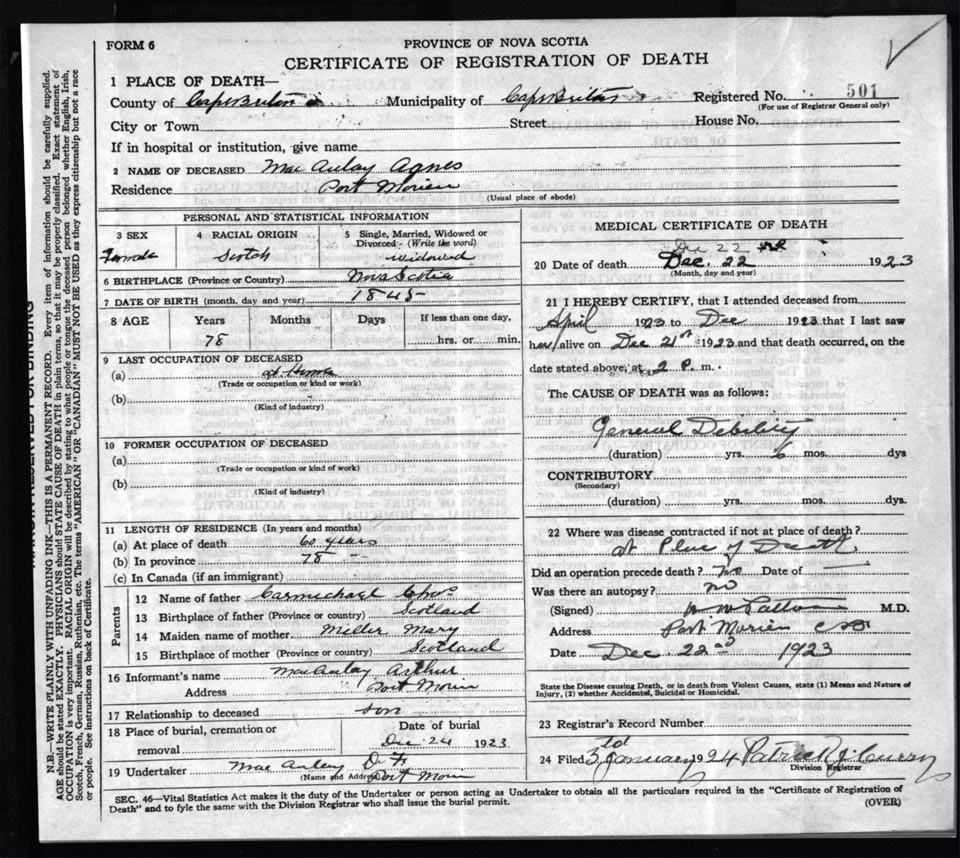 FORM 6
PROVINCE OF NOVA SCOTIA
CERTIFICATE OF REGISTRATION OF DEATH
1 PLACE OF DEATH—
County of Cape Breton Municipality of Cape Breton Registered No. 501
(For use of Registrar General only)
City or Town Street House No.
If in hospital or institution, give name
2 NAME OF DECEASED MacAulay Agnes
Residence Port Morien
(Usual place of abode)
PERSONAL AND STATISTICAL INFORMATION
3 SEX 4 RACIAL ORIGIN 5 Single, Married, Widowed or
Divorced - (Write the word)
Female Scotch widowed
6 BIRTHPLACE (Province or Country) Nova Scotia
7 DATE OF BIRTH (month, day and year) 1845
8 AGE Years Months Days If less than one day,
78 hrs. or min.
9 LAST OCCUPATION OF DECEASED
(a) at Home
(Trade or occupation or kind or work)
(b)
(Kind of industry)
10 FORMER OCCUPATION OF DECEASED
(a)
(Trade or occupation or kind of work)
(b)
(Kind of industry)
11 LENGTH OF RESIDENCE (In years and months)
(a) At place of death 60 years
(b) In province 78
(c) In Canada (if an immigrant)
Parents
12 Name of father Carmichael Chas
13 Birthplace of father (Province or country) Scotland
14 Maiden name of mother Miller Mary
15 Birthplace of mother (Province or country) Scotland
16 Informant's name MacAulay Arthur
Address Port Morien
17 Relationship to deceased son
18 Place of burial, cremation or Date of burial
removal Dec 24 1923
19 Undertaker MacAuley D. F.
(Name and Address) Port Morien
MEDICAL CERTIFICATE OF DEATH
Dec 22nd
20 Date of death Dec. 22 1923
(Month, day and year)
21 I HEREBY CERTIFY, that I attended deceased from
April 1923 to Dec 1923 that I last saw
her alive on Dec 21st 1923 and that death occurred, on the
date stated above, at 2 P. m.
The CAUSE OF DEATH was as follows:
General Debility
(duration) yrs. 6 mos. dys
CONTRIBUTORY
(Secondary)
(duration) yrs. mos. dys.
22 Where was disease contracted if not at place of death?
at Place of Death
Did an operation precede death? no Date of
Was there an autopsy? no
(Signed) M.D.
Address Port Morien CB
Date Dec. 22nd 1923
State the Disease causing Death, or in death from Violent Causes, state (1) Means and Nature of
Injury, (2) whether Accidental, Suicidal or Homicidal.
23 Registrar's Record Number
24 Filed January 1924 Patrick J. Curry
Division Registrar
SEC. 46—Vital Statistics Act makes it the duty of the Undertaker or person acting as Undertaker to obtain all the particulars required in the "Certificate of Registration of
Death" and to fyle the same with the Division Registrar who shall issue the burial permit. (OVER)
MARGIN RESERVED FOR BINDING
N.B.—WRITE PLAINLY WITH UNFADING INK—THIS IS A PERMANENT RECORD. Every item of information should be carefully supplied.
AGE should be stated EXACTLY. PHYSICIANS should STATE CAUSE OF DEATH in plain terms, so that it may be properly classified. Exact statement of
OCCUPATION is very important. RACIAL ORIGIN will be described by stating to what people or tongue the deceased person belonged whether English, Irish,
Scotch, French, German, Russian, Ruthenian, etc. The terms "AMERICAN" OR "CANADIAN" MUST NOT BE USED as they express citizenship but not a race
or people. See instructions on back of Certificate.